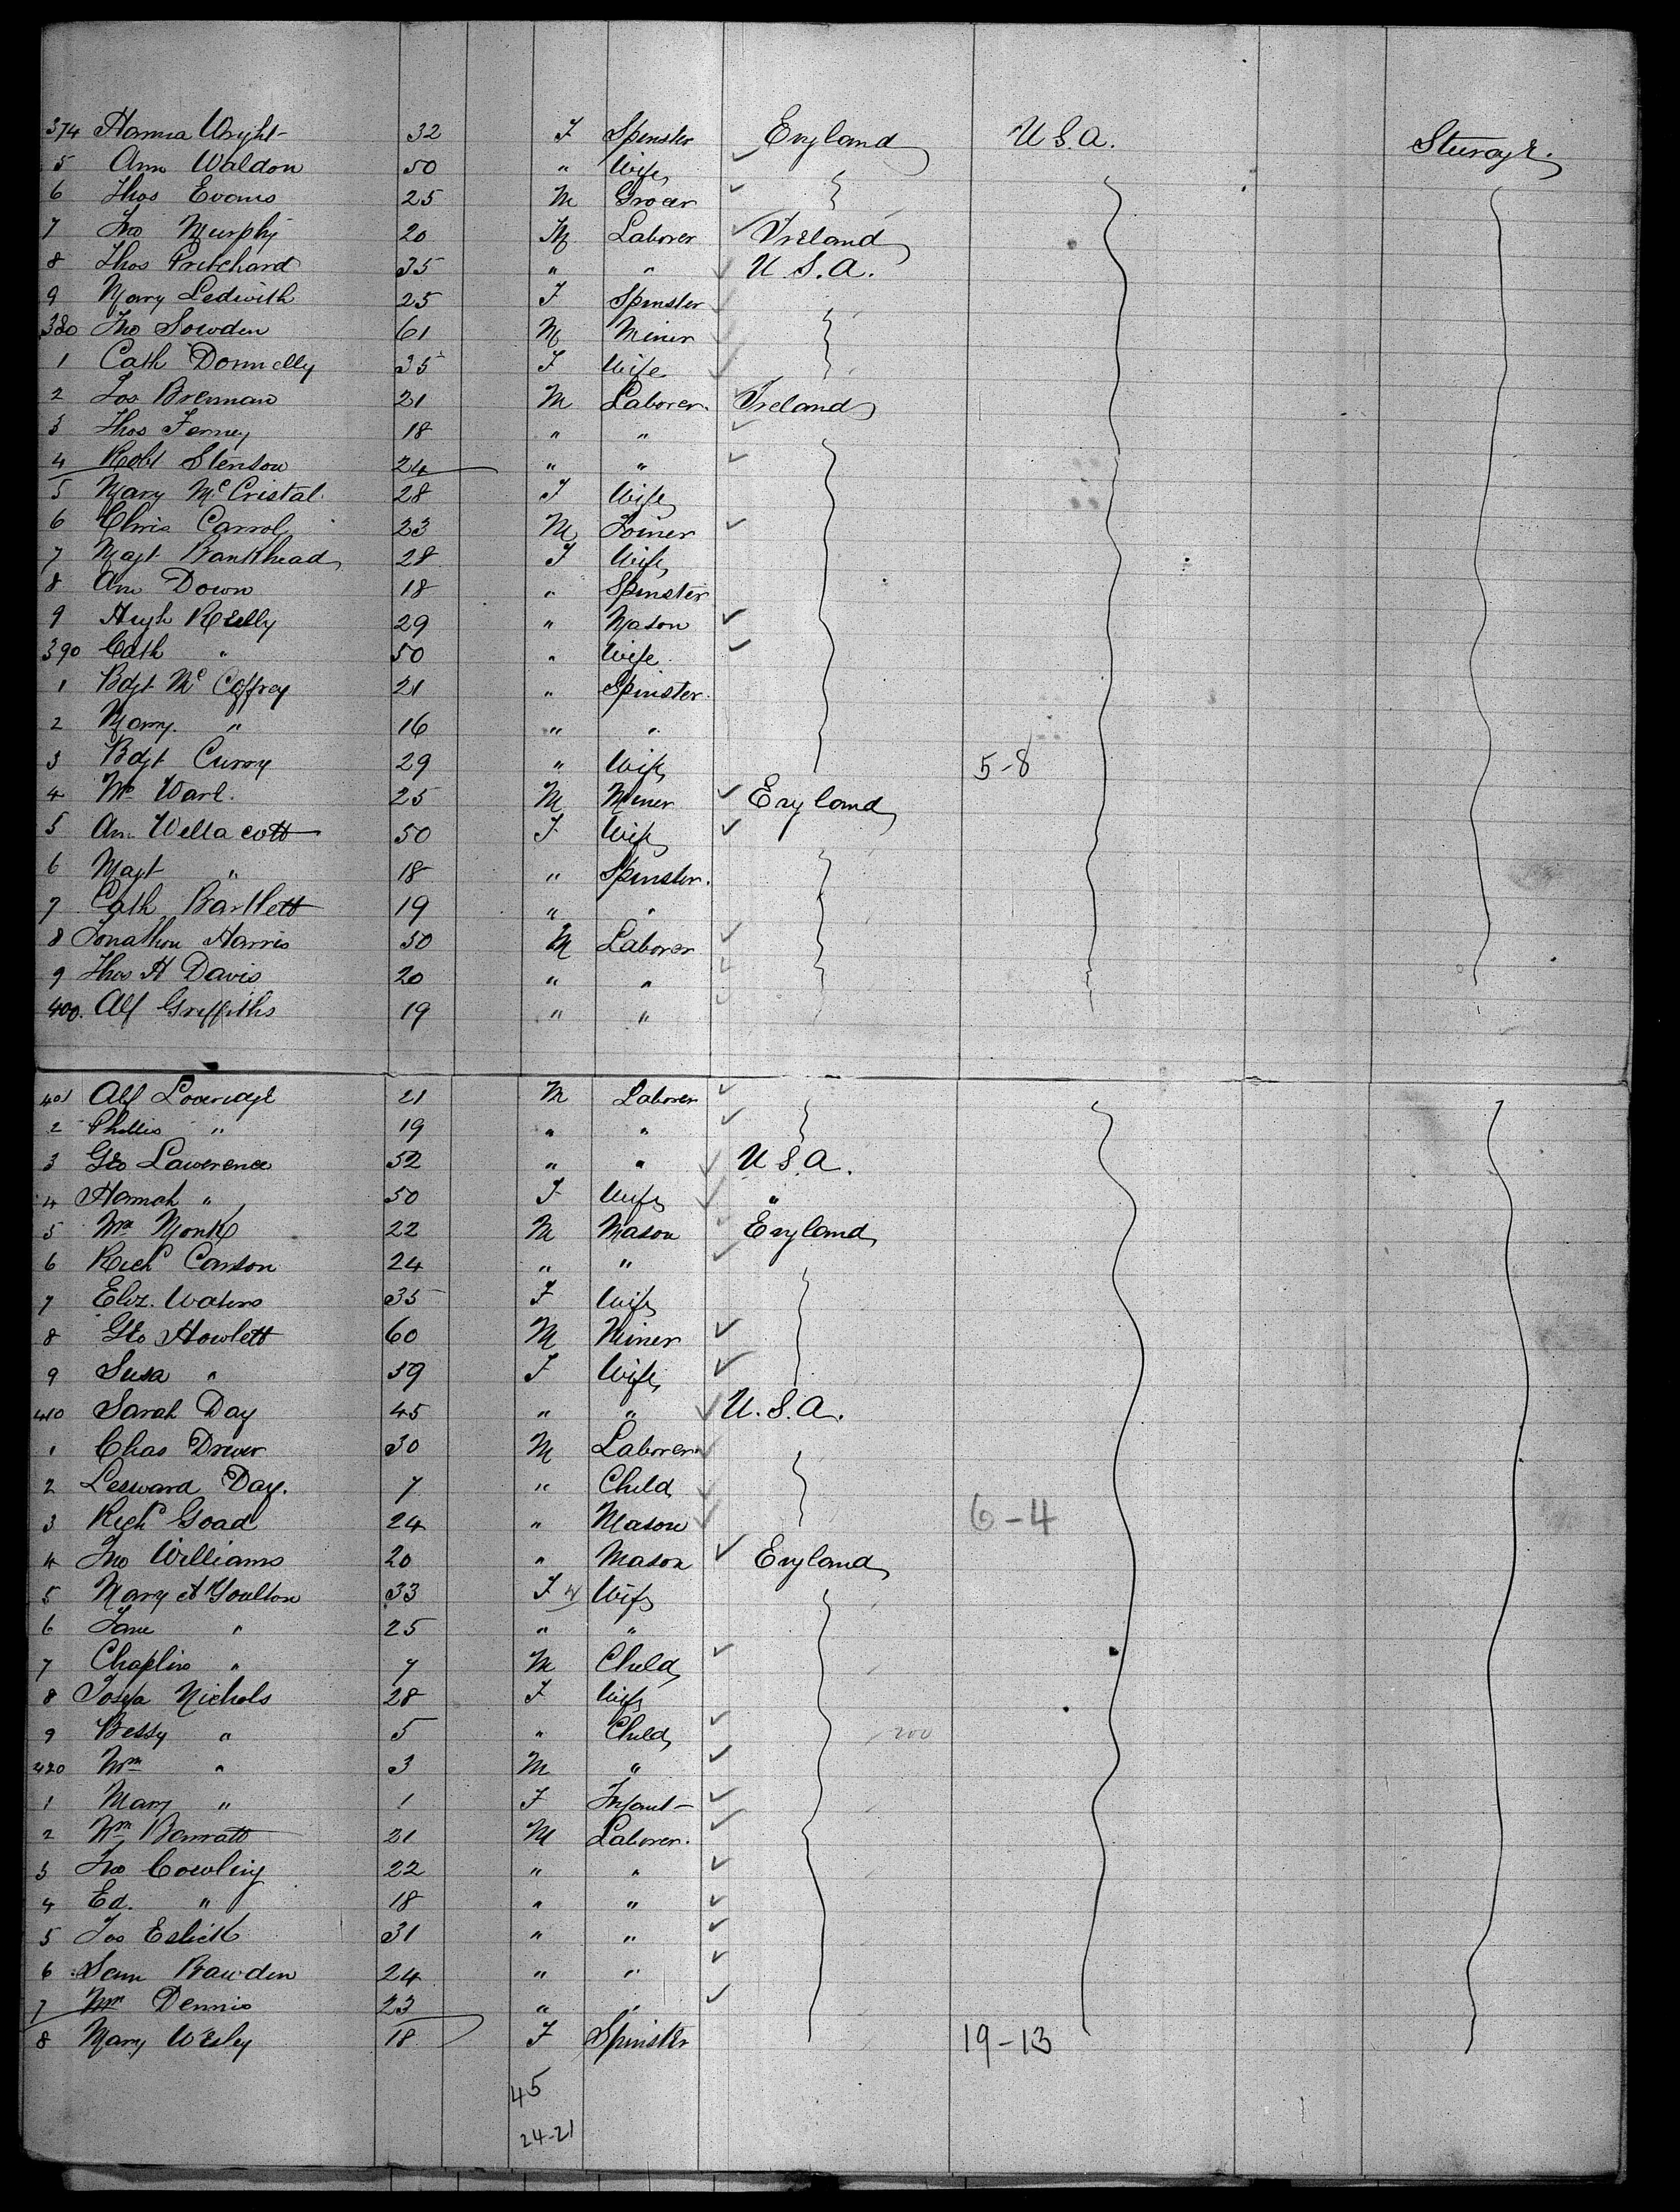 374 Hanna Wright 32 F Spinster England U.S.A. Steerage.
5 Ann Waldon 50 " Wife
6 Thos Evans 25 M Grocer
7 Jno Murphy 20 M Laborer Ireland
8 Thos Pritchard 35 " " U.S.A.
9 Mary Ledwith 25 F Spinster
380 Jno Sowden 61 M Miner
1 Cath Donnelly 35 F Wife
2 Jos Brennan 21 M Laborer. Ireland
3 Thos Ferney 18 " "
4 Robt Stenson 24 " "
5 Mary McCristal. 28 F Wife
6 Chris Carrol 23 M Joiner
7 Magt Bankhead 28 F Wife
8 Ann Down 18 " Spinster
9 Hugh Reilly 29 " Mason
390 Cath " 50 " Wife
1 Bdgt Mc Caffrey 21 " Spinster.
2 Mary. " 16 " "
3 Bdgt Curry 29 " Wife 5-8
4 Wm Warl. 25 M Miner England
5 An. Wellacott 50 F Wife
6 Magt " 18 " Spinster.
7 Cath Bartlett 19 " "
8 Jonathon Harris 50 M Laborer
9 Thos H Davis 20 " "
400. Alf Griffiths 19 " "
401 Alf Loveridge 21 M Laborer
2 Phillis " 19 " "
3 Geo Lawerence 52 " " U.S.A.
4 Hannah " 50 F Wife "
5 Wm Monk 22 M Mason England
6 Richd Carson 24 " "
7 Eliz. Waters 35 F Wife
8 Geo Howlett 60 M Miner
9 Susa " 59 F Wife
410 Sarah Day 45 " " U.S.A.
1 Chas Drewer 30 M Laborer
2 Lesward Day. 7 " Child
3 Richd Goad 24 " Mason 6-4
4 Jno Williams 20 " Mason England
5 Mary A Goulton 33 F W Wife
6 Jane " 25 " "
7 Chaplin " 7 M Child
8 Josefa Nichols 28 F Wife
9 Bessy " 5 " Child 200
420 Wm " 3 M "
1 Mary " 1 F Infant
2 Wm Barratt 21 M Laborer.
3 Jno Cowling 22 " "
4 Ed. " 18 " "
5 Jos Eslick 31 " "
6 Sam Bawden 24 " "
7 Wm Dennis 23 " "
8 Mary Wesley 18 F Spinster 19-13
45
24-21